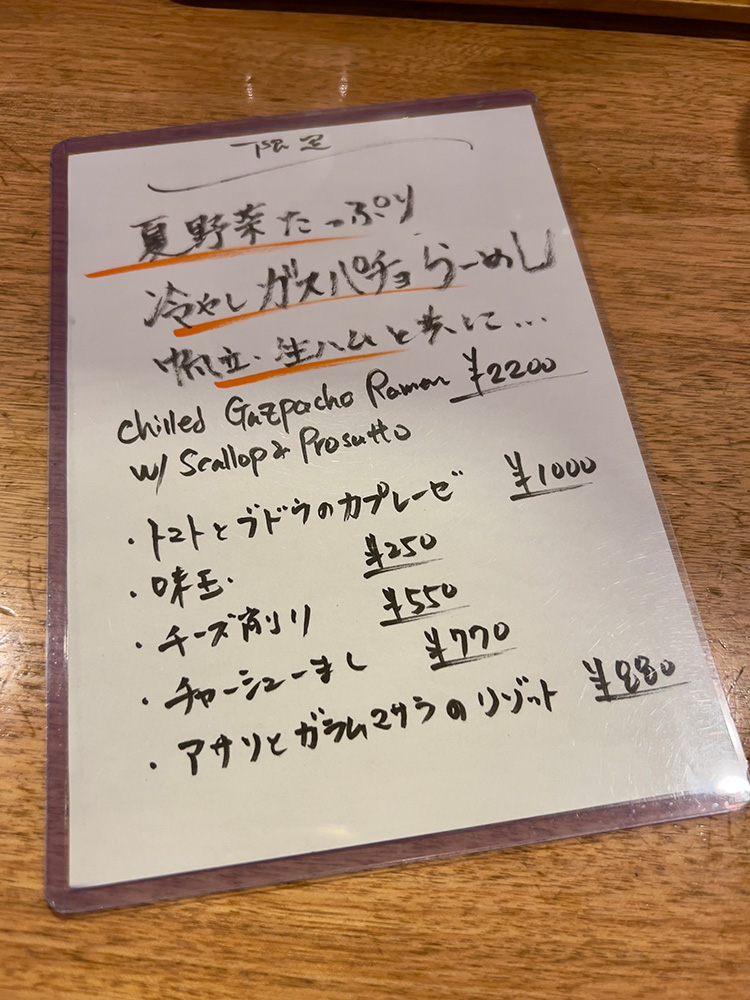 限定
夏野菜たっぷり
冷やしガスパチョらーめし
帆立・生ハムと共に...
chilled Gazpacho Ramen ¥2200
w/ Scallop & Prosutto
・トマトとブドウのカプレーゼ ¥1000
・味玉. ¥250
・チーズ削り ¥550
・チャーシューまし ¥770
・アサリとガラムマサラのリゾット ¥880